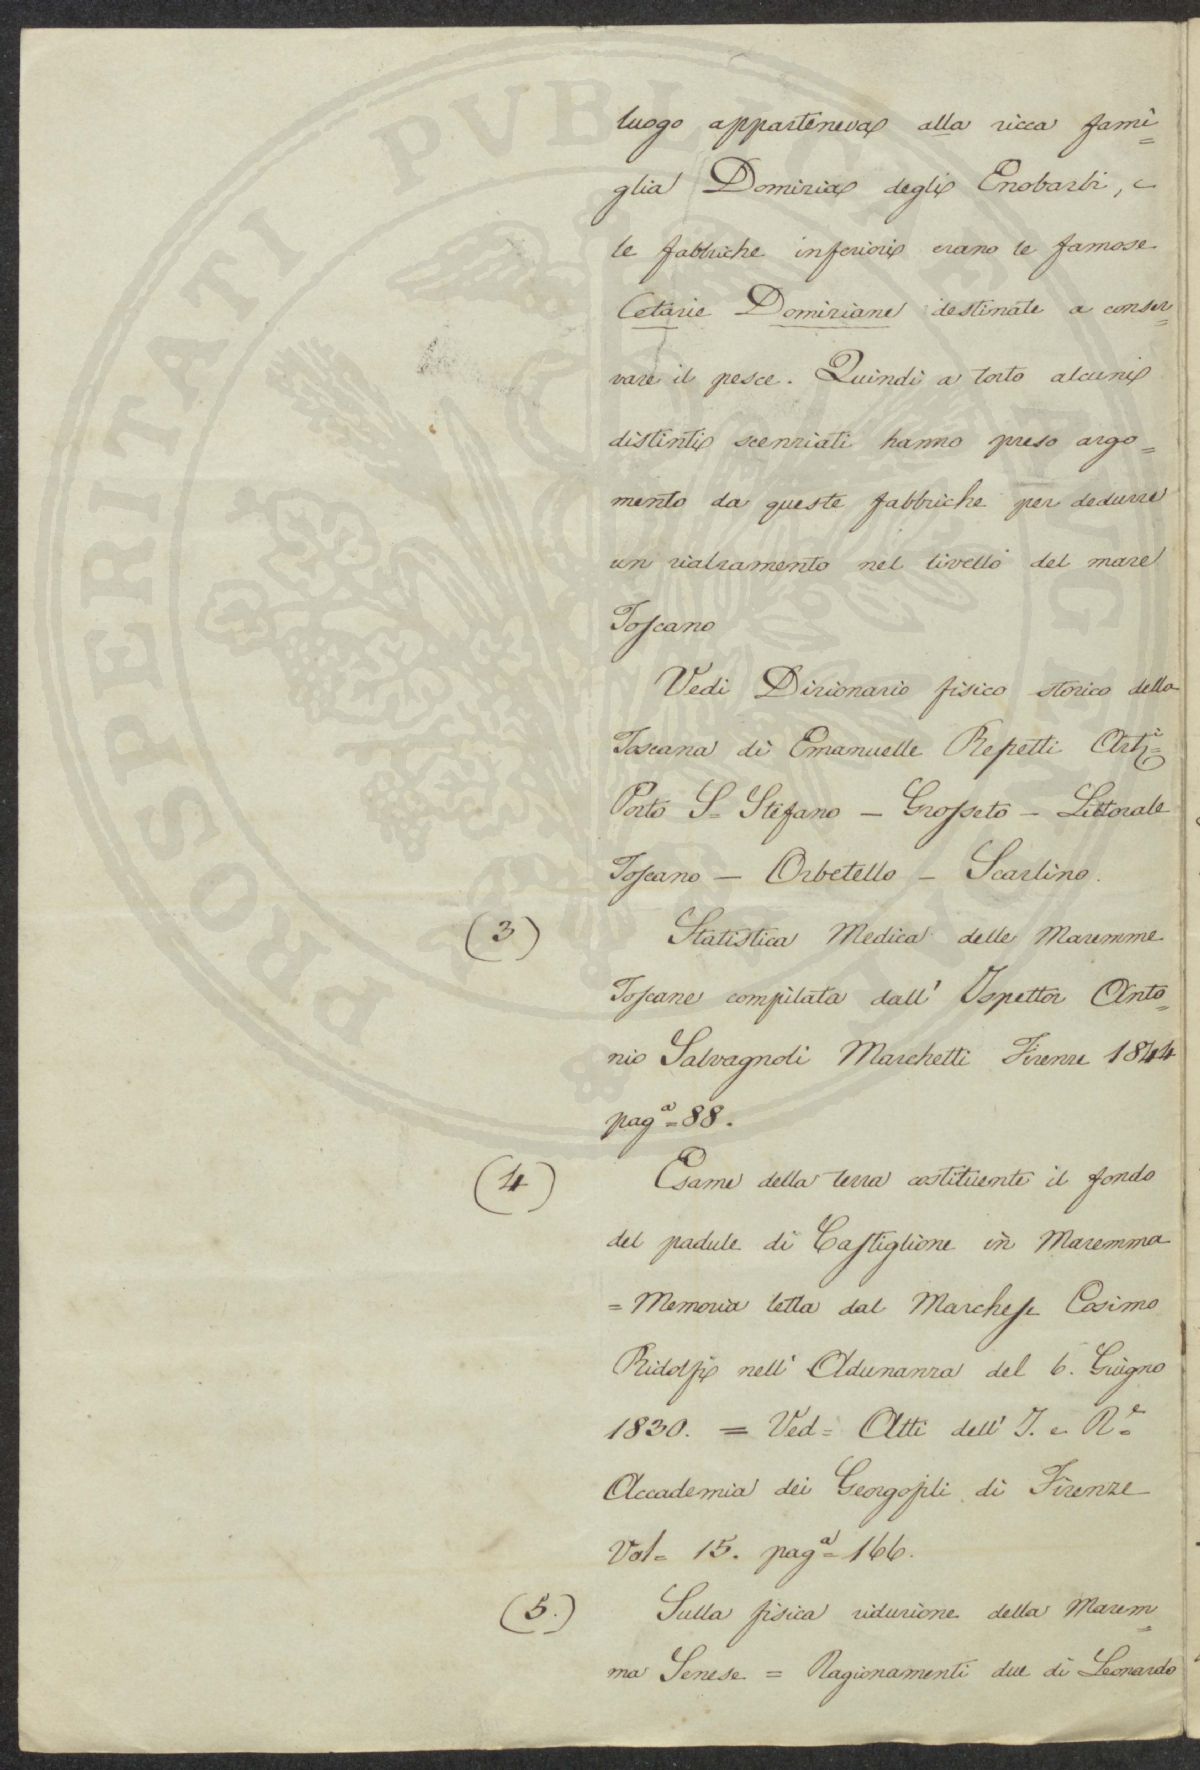 luogo apparteneva alla ricca fami=
glia Domizia degli Enobarbi, e
le fabbriche inferiori erano le famose
Cetarie Domiziane destinate a conser=
vare il pesce. Quindi a torto alcuni
distinti scenziati hanno preso argo=
mento da queste fabbriche per dedurre
un rialzamento nel livello del mare
Toscano
Vedi Dizionario fisico storico della
Toscana di Emanuelle Repetti Arti=
Porto S= Stefano — Grosseto — Littorale
Toscano — Orbetello — Scarlino.
(3) Statistica Medica delle Maremme
Toscane compilata dall' Ispettor Anto=
nio Salvagnoli Marchetti Firenze 1844
pagᵃ= 88.
(4) Esame della terra costituente il fondo
del padule di Castiglione in Maremma
= Memoria letta dal Marchese Cosimo
Ridolfi nell' Adunanza del 6. Guigno
1830. = Ved= Atti dell' I. e R.ᵉ
Accademia dei Georgofili di Firenze
Vol= 15. pagᵃ= 166.
(5.) Sulla fisica riduzione della Marem=
ma Senese = Ragionamenti due di Leonardo
PROSPERITATI PVBLICAE AVGENDAE